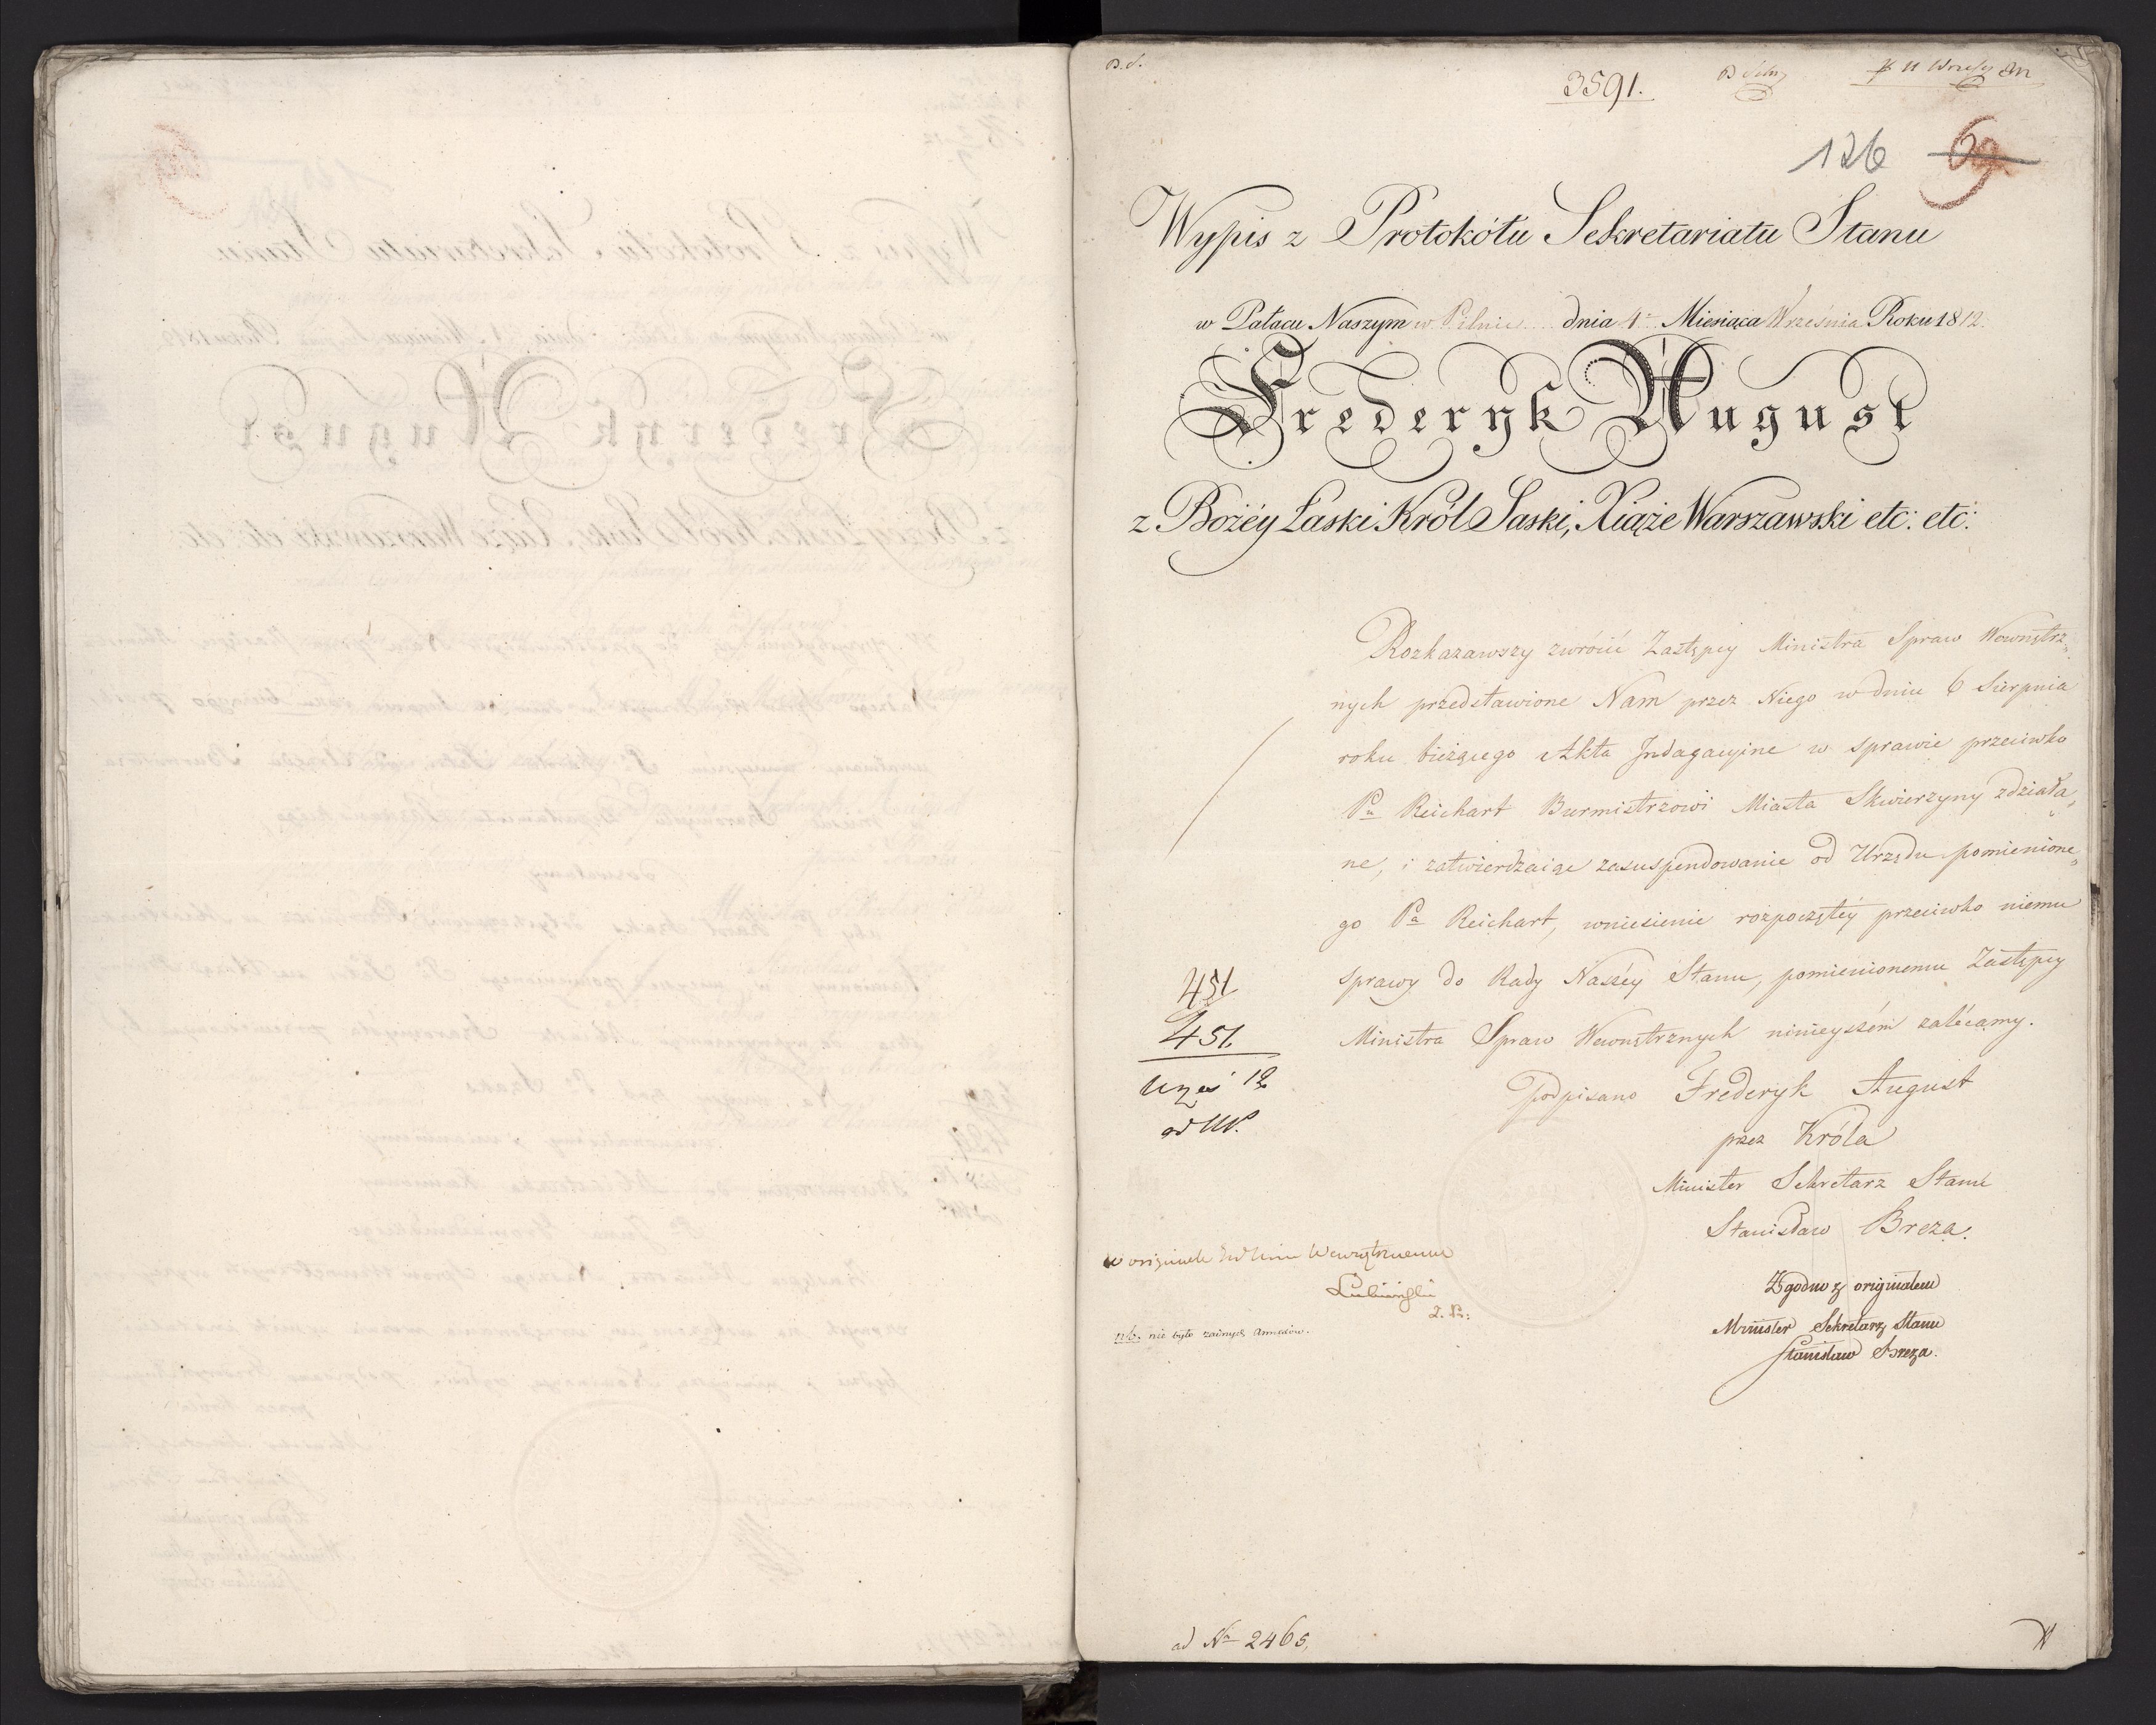 3591.
126 69
Wypis z Protokółu Sekretariatu Stanu
w Pałacu Naszym w Pilnic dnia 4 Miesiąca Września Roku 1812.
Frederyk August
z Bożéy Łaski Król Saski, Xiąże Warszawski etc: etc:
Rozkazawszy zwrócić Zastępcy Ministra Spraw Wewnętrz-
nych przedstawione Nam przez Niego w dniu 6 Sierpnia
roku bieżącego Akta Indagacyine w sprawie przeciwko
Pu Reichart Burmistrzowi Miasta Skwierzyny zdziała-
ne, i zatwierdzaiąc zasuspendowanie od Urzędu pomienione-
go Pa Reichart, wniesienie rozpoczętéy przeciwko niemu
sprawy do Rady Naszéy Stanu, pomienionemu Zastępcy
Ministra Spraw Wewnętrznych ninieyszém zalécamy.
451
451
ad
Podpisano Frederyk August
przez Króla
Minister Sekretarz Stanu
Stanisław Breza.
w originale Wewnętrznemu
nb. nie było żadnych annexów.
Zgodno z originałem
Minister Sekretarz Stanu
Stanisław Breza.
ad Nr 2465.